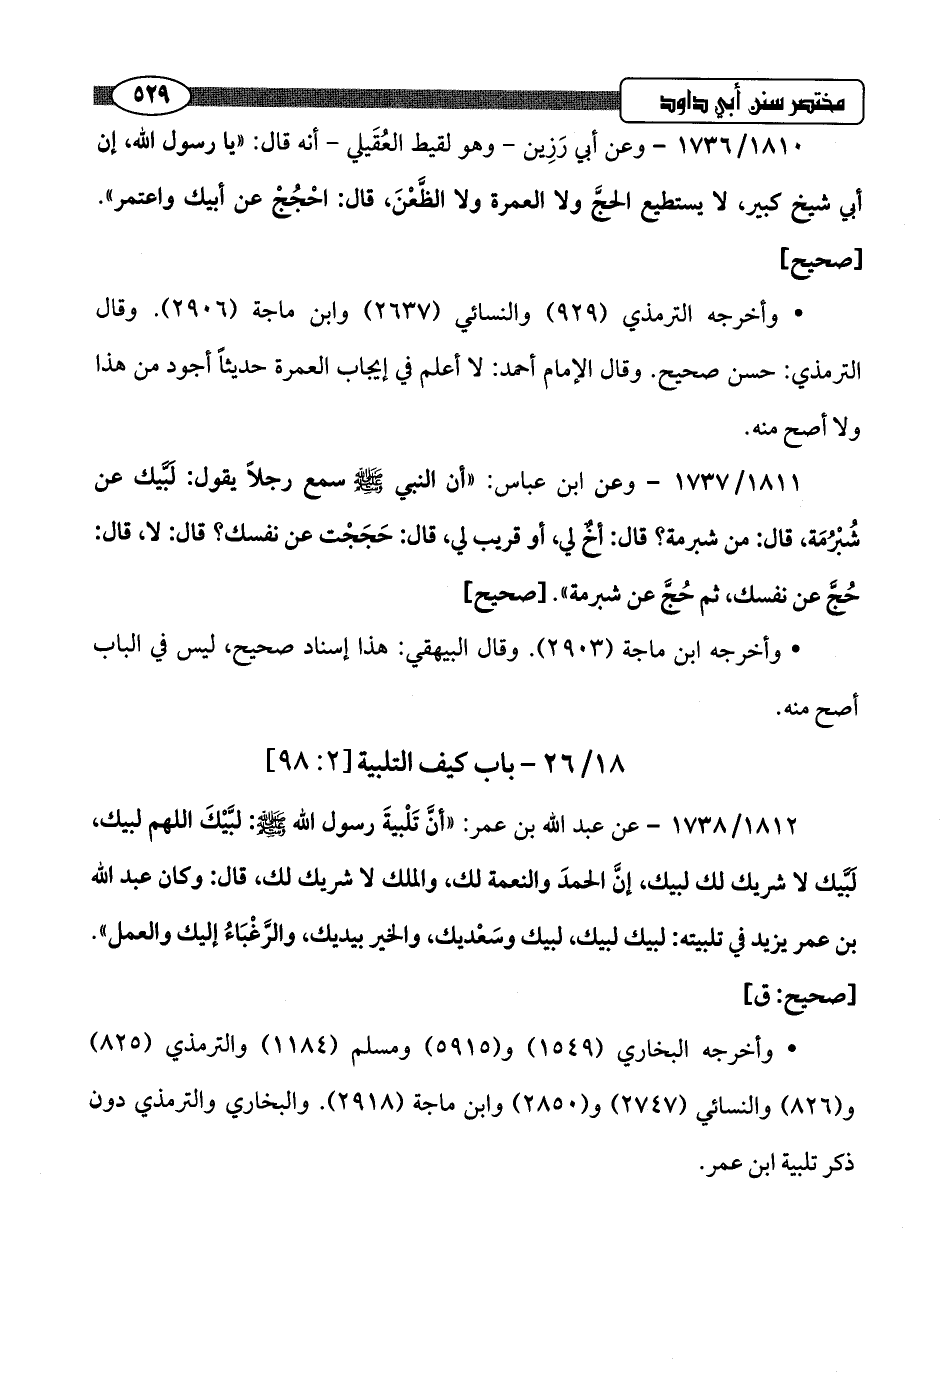 مختصر سنن أبي داود ٥٢٩
١٧٣٦/١٨١٠ - وعن أبي رَزِين - وهو لقيط العُقَيلي - أنه قال: «يا رسول الله، إن
أبي شيخ كبير، لا يستطيع الحجَّ ولا العمرة ولا الظَّعْنَ، قال: احْجُجْ عن أبيك واعتمر».
[صحيح]
• وأخرجه الترمذي (٩٢٩) والنسائي (٢٦٣٧) وابن ماجة (٢٩٠٦). وقال
الترمذي: حسن صحيح. وقال الإمام أحمد: لا أعلم في إيجاب العمرة حديثاً أجود من هذا
ولا أصح منه.
١٧٣٧/١٨١١ - وعن ابن عباس: «أن النبي ﷺ سمع رجلاً يقول: لَبَّيك عن
شُبْرُمَة، قال: من شبرمة؟ قال: أخٌ لي، أو قريب لي، قال: حَجَجْت عن نفسك؟ قال: لا، قال:
حُجَّ عن نفسك، ثم حُجَّ عن شبرمة». [صحيح]
• وأخرجه ابن ماجة (٢٩٠٣). وقال البيهقي: هذا إسناد صحيح، ليس في الباب
أصح منه.
٢٦/١٨ - باب كيف التلبية [٢: ٩٨]
١٧٣٨/١٨١٢ - عن عبد الله بن عمر: «أنَّ تَلْبيةَ رسول الله ﷺ: لبَّيْكَ اللهم لبيك،
لَبَّيك لا شريك لك لبيك، إنَّ الحمدَ والنعمة لك، والملك لا شريك لك، قال: وكان عبد الله
بن عمر يزيد في تلبيته: لبيك لبيك، لبيك وسَعْديك، والخير بيديك، والرَّغْبَاءُ إليك والعمل».
[صحيح: ق]
• وأخرجه البخاري (١٥٤٩) و(٥٩١٥) ومسلم (١١٨٤) والترمذي (٨٢٥)
و(٨٢٦) والنسائي (٢٧٤٧) و(٢٨٥٠) وابن ماجة (٢٩١٨). والبخاري والترمذي دون
ذكر تلبية ابن عمر.